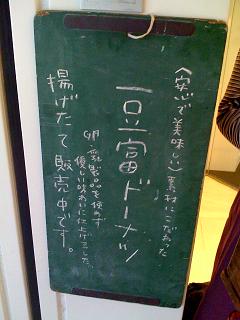 〈安心で美味しい〉素材にこだわった
豆富ドーナツ
卵・乳製品を使わず
優しい味わいに仕上げました。
揚げたて販売中です。